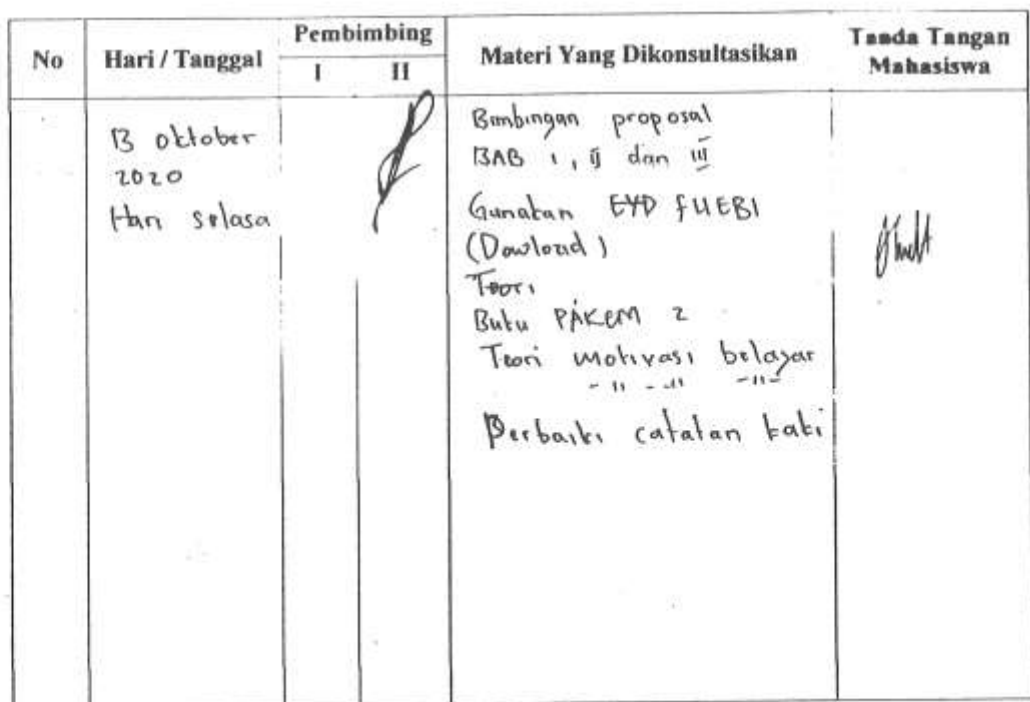 No Hari / Tanggal Pembimbing Materi Yang Dikonsultasikan Tanda Tangan Mahasiswa
I II
13 oktober
2020
Hari selasa
Bimbingan proposal
BAB I, II dan III
Gunakan EYD PUEBI
(Dowload)
Teori
Buku PAKEM 2
Teori motivasi belajar
-11- -11- -11-
Perbaiki catatan kaki